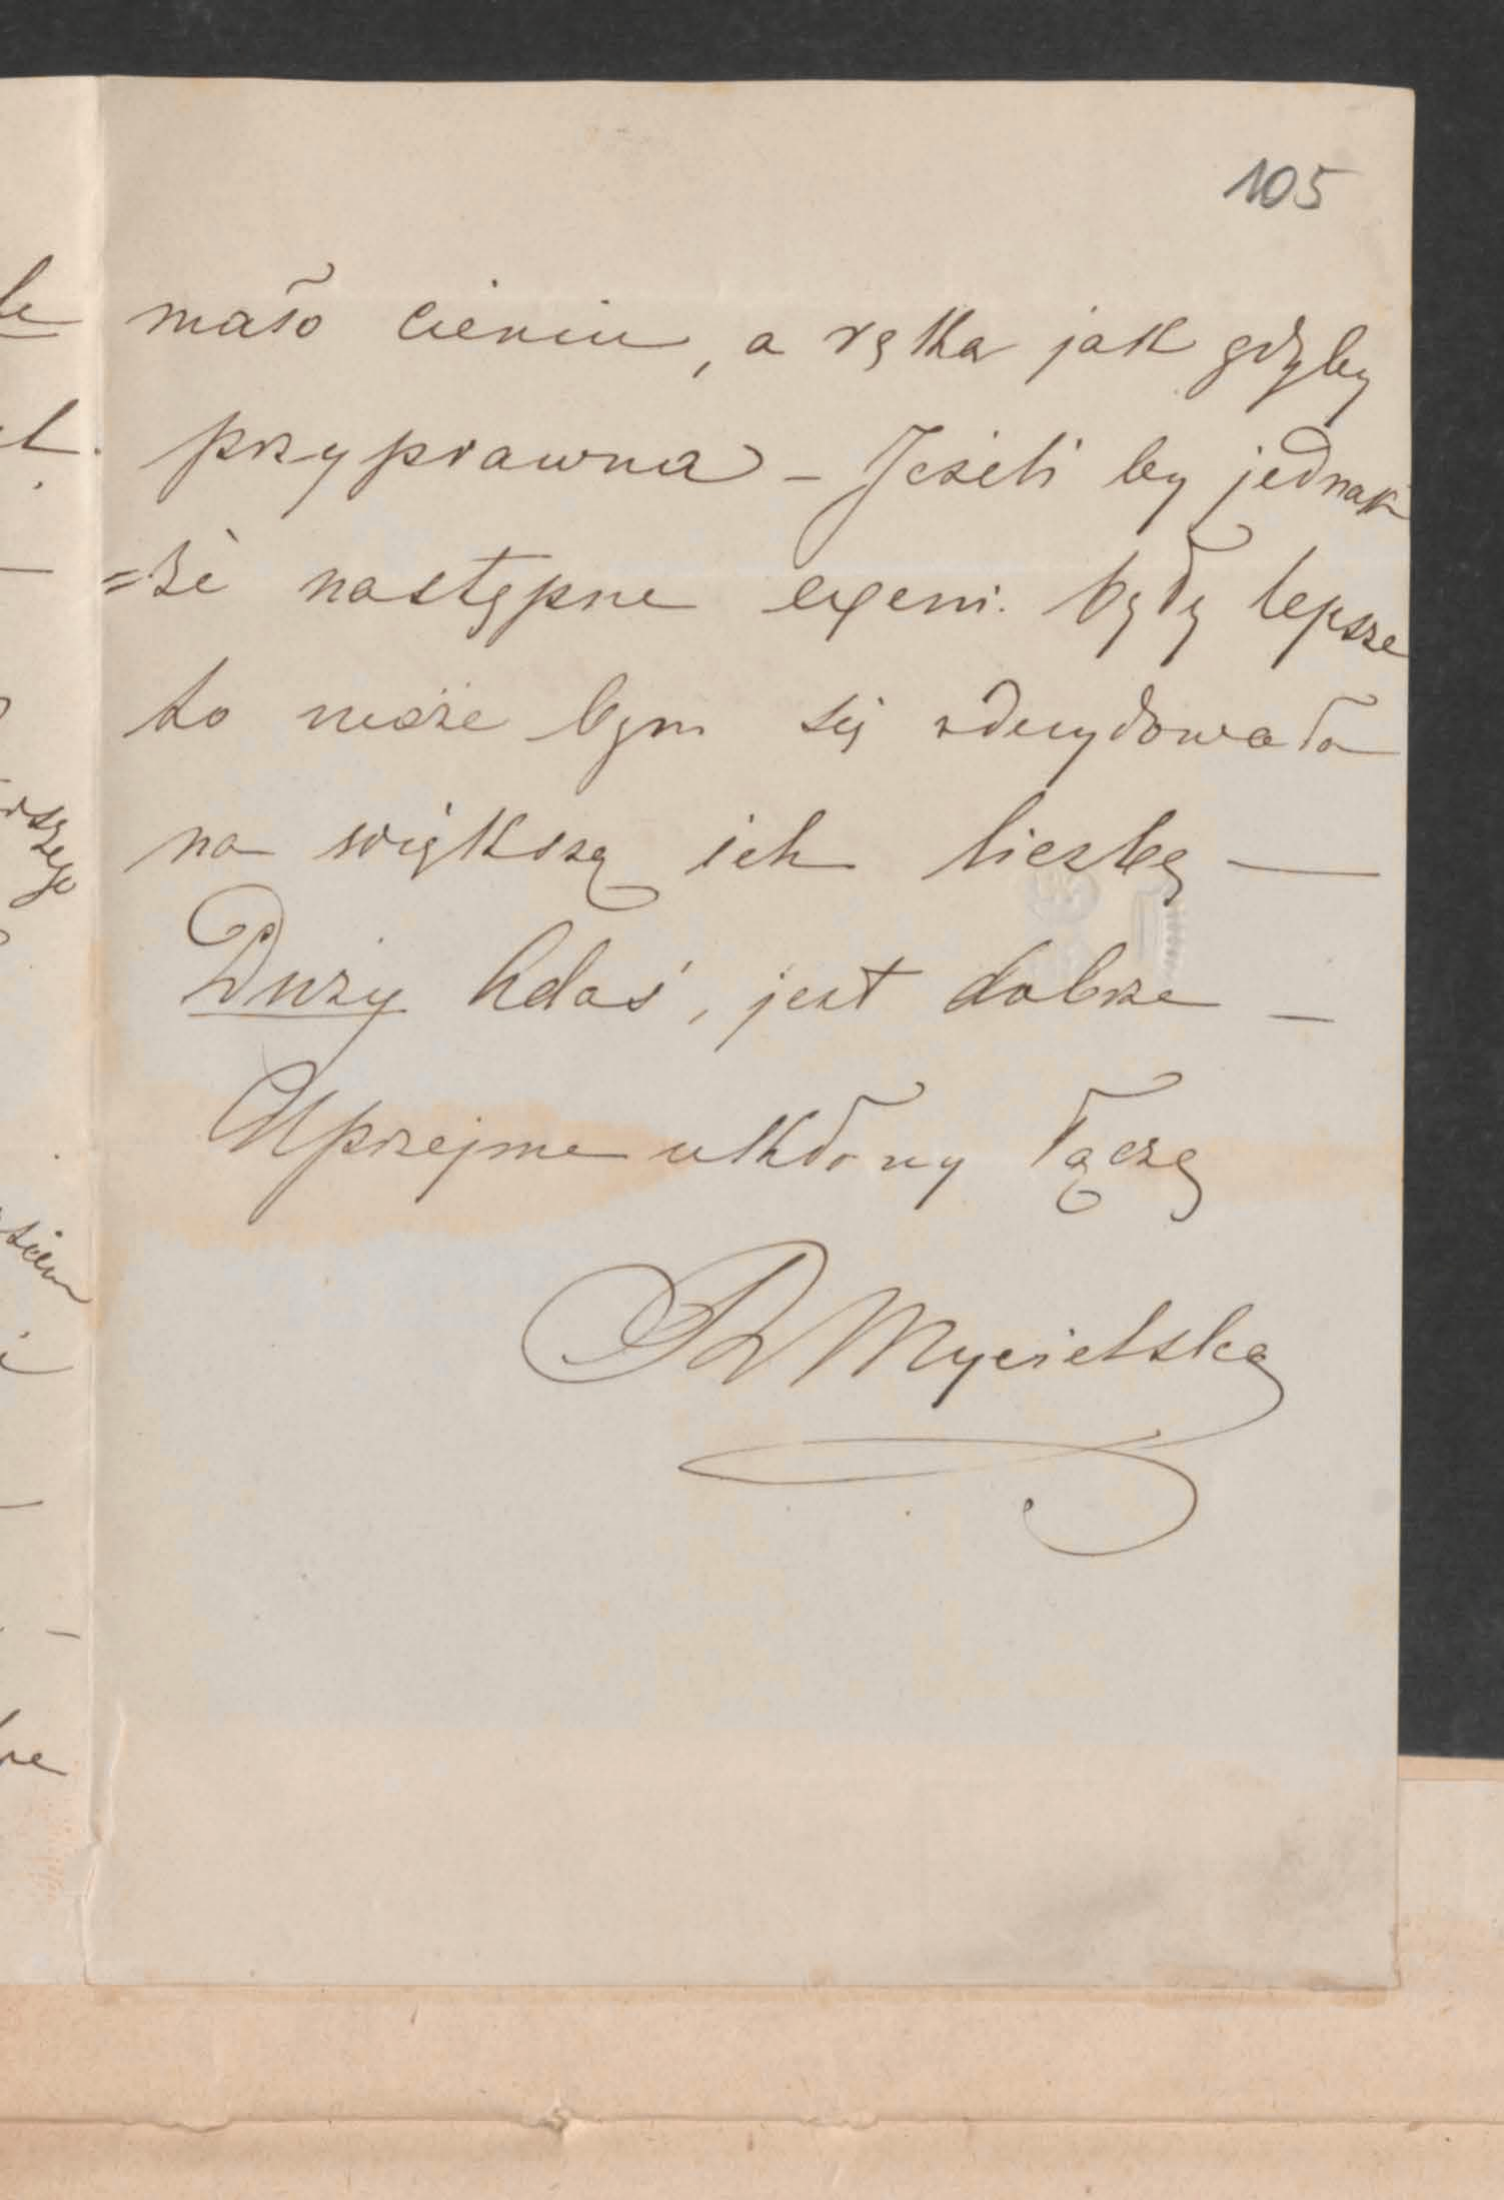 105
mało cieniu, a ręka jak gdyby
przyprawna – Jeżeli by jednak
=że następne exem. były lepsze
to może bym się zdecydowała
na większą ich liczbę —
Duży Adaś, jest dobrze –
Uprzejme ukłony łączę
Mycielska